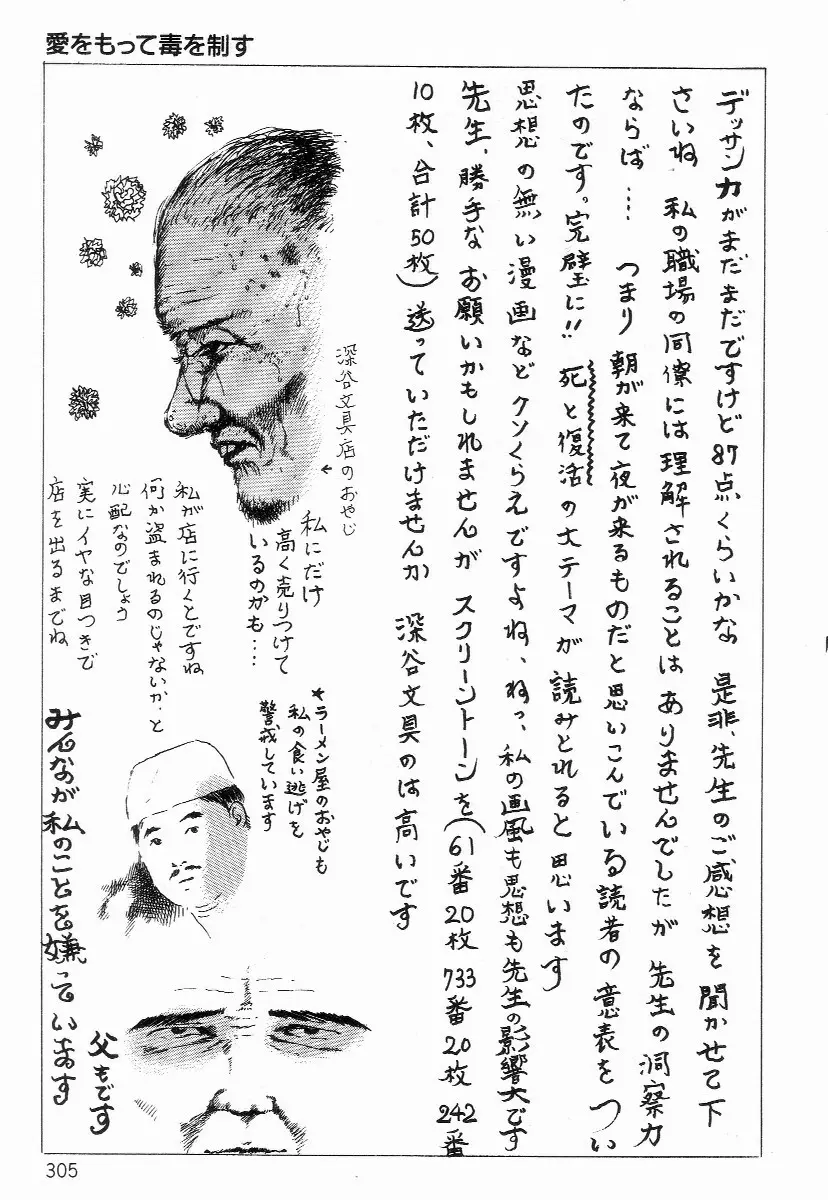 愛をもって毒を制す
デッサン力がまだまだですけど87点くらいかな 是非、先生のご感想を聞かせて下
さいね 私の職場の同僚には理解されることはありませんでしたが 先生の洞察力
ならば… つまり朝が来て夜が来るものだと思いこんでいる読者の意表をつい
たのです。完璧に!! 死と復活の大テーマが読みとれると思います
思想の無い漫画などクソくらえですよね、ねっ、私の画風も思想も先生の影響大です
先生、勝手なお願いかもしれませんがスクリーントーンを(61番20枚733番20枚242番
10枚、合計50枚)送っていただけませんか 深谷文具のは高いです
深谷文具店のおやじ
私にだけ
高く売りつけて
いるのかも…
私が店に行くとですね
何か盗まれるのじゃないか、と
心配なのでしょう
実にイヤな目つきで
店を出るまでね
*ラーメン屋のおやじも
私の食い逃げを
警戒しています
みんなが私のことを嫌っています
父もです
305